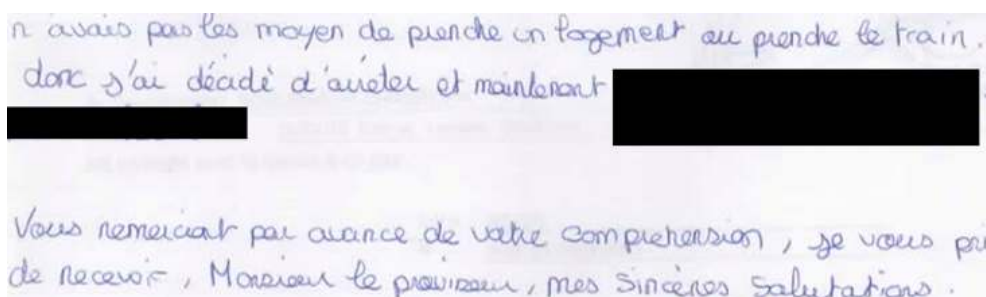 n'avais pas les moyen de prendre un logement ou prendre le train.
donc j'ai décidé d'arreter et maintenant
Vous remerciant par avance de votre compréhension, je vous pri
de recevoir, Monsieur le proviseur, mes sincères salutations.